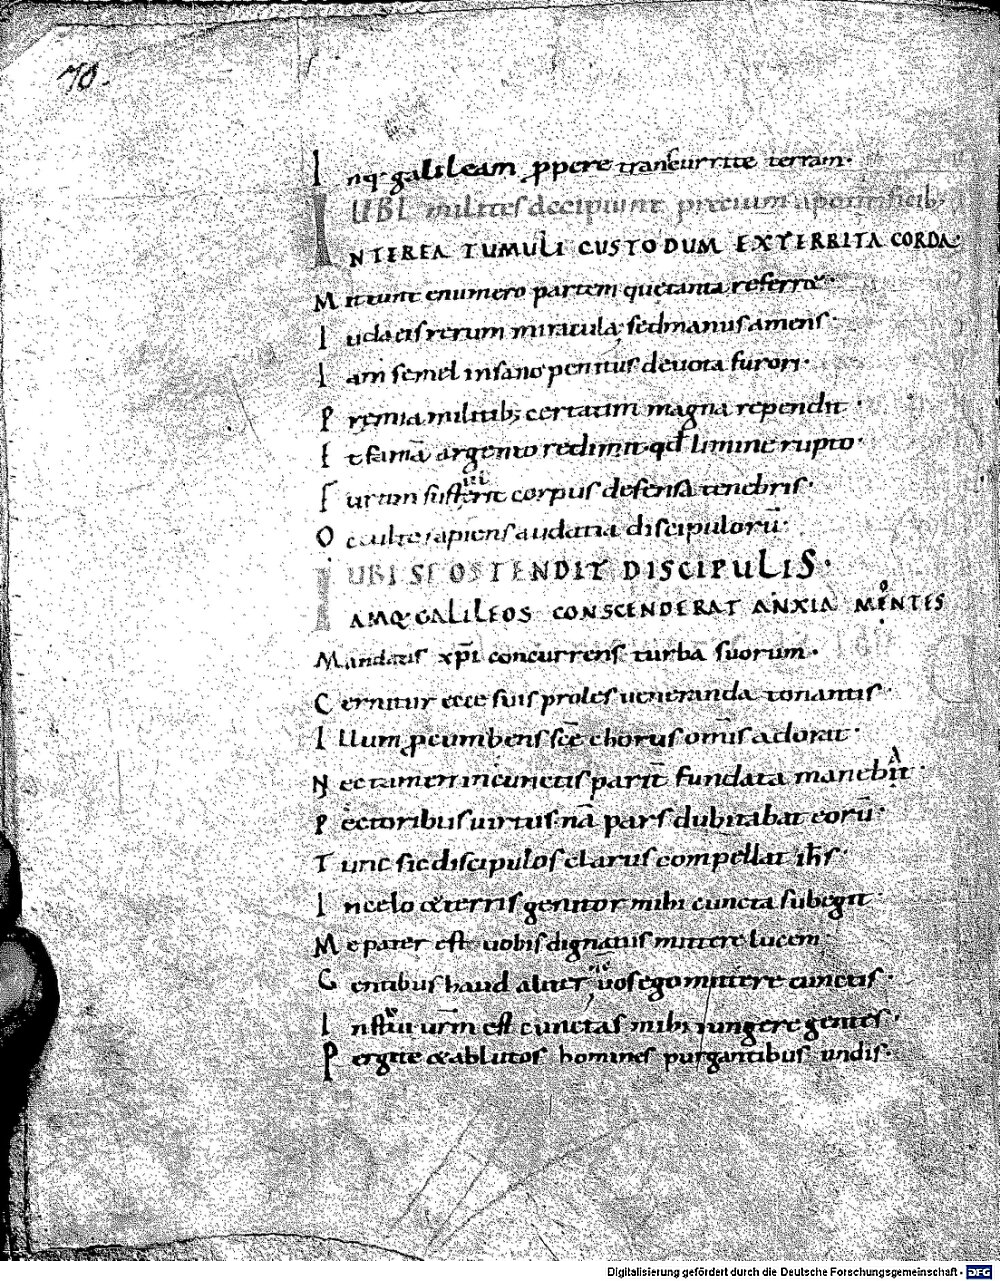 70.
Inq; galileam ppere transcurrite terram·
UBI milites decipiunt precium a pontificib;
INTEREA TUMULI CUSTODUM EXTERRITA CORDA·
Mittunt enumero partem que tanta referret·
Iudaeis rerum miracula; sed manus amens·
Iam semel insano penitus deuota furori·
Premia militib; certatim magna rependit·
Et famā argento redimit qđ limine rupto·
Furtim corpus defensa tenebris·
Occulte rapiens audatia discipulorū·
UBI SE OSTENDIT DISCIPULIS·
IAMQ· GALILEOS CONSCENDERAT ANXIA MONTES
Mandatis xp̄i concurrens turba suorum·
Cernitur ecce suis proles ueneranda tonantis·
Illum pcumbens sc̄e chorus om̄is adorat·
Nec tamen in cunctis parit̄ fundata manebat·
Pectoribus uirtus nā pars dubitabat eorū·
Tunc sic discipulos clarus compellat ih̄s·
In celo & terris genitor mihi cuncta subegit·
Me pater est uobis dignatus mittere lucem·
Gentibus haud aliter uos ego mittere cunctis·
urm̄ est cunctas mihi iungere gentes·
Pergite & ablutos homines purgantibus undis·
Digitalisierung gefördert durch die Deutsche Forschungsgemeinschaft - DFG